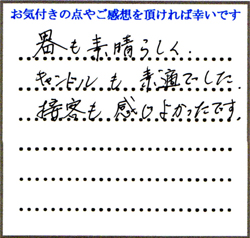 お気付きの点やご感想を頂ければ幸いです
器も素晴らしく、
キャンドルも素適でした。
接客も感じよかったです。